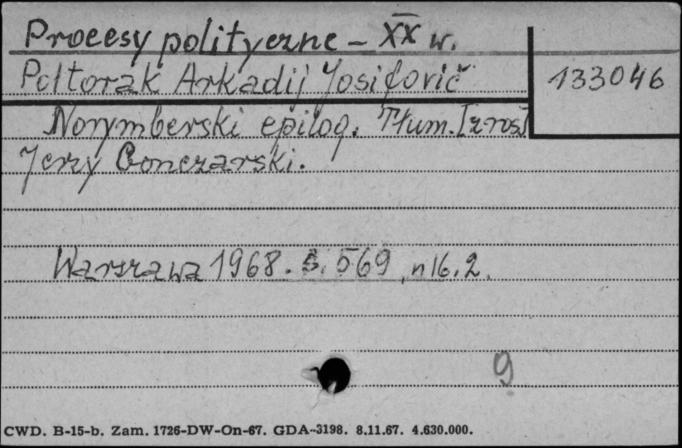 Procesy polityczne - XX w.
Połtorak Arkadij Josifovič 133046
Norymberski epilog. Tłum. [z ros]
Jerzy Gonczarski.
Warszawa 1968. S. 569, nlb. 2.
9
CWD. B-15-b. Zam. 1726-DW-On-67. GDA-3198. 8.11.67. 4.630.000.